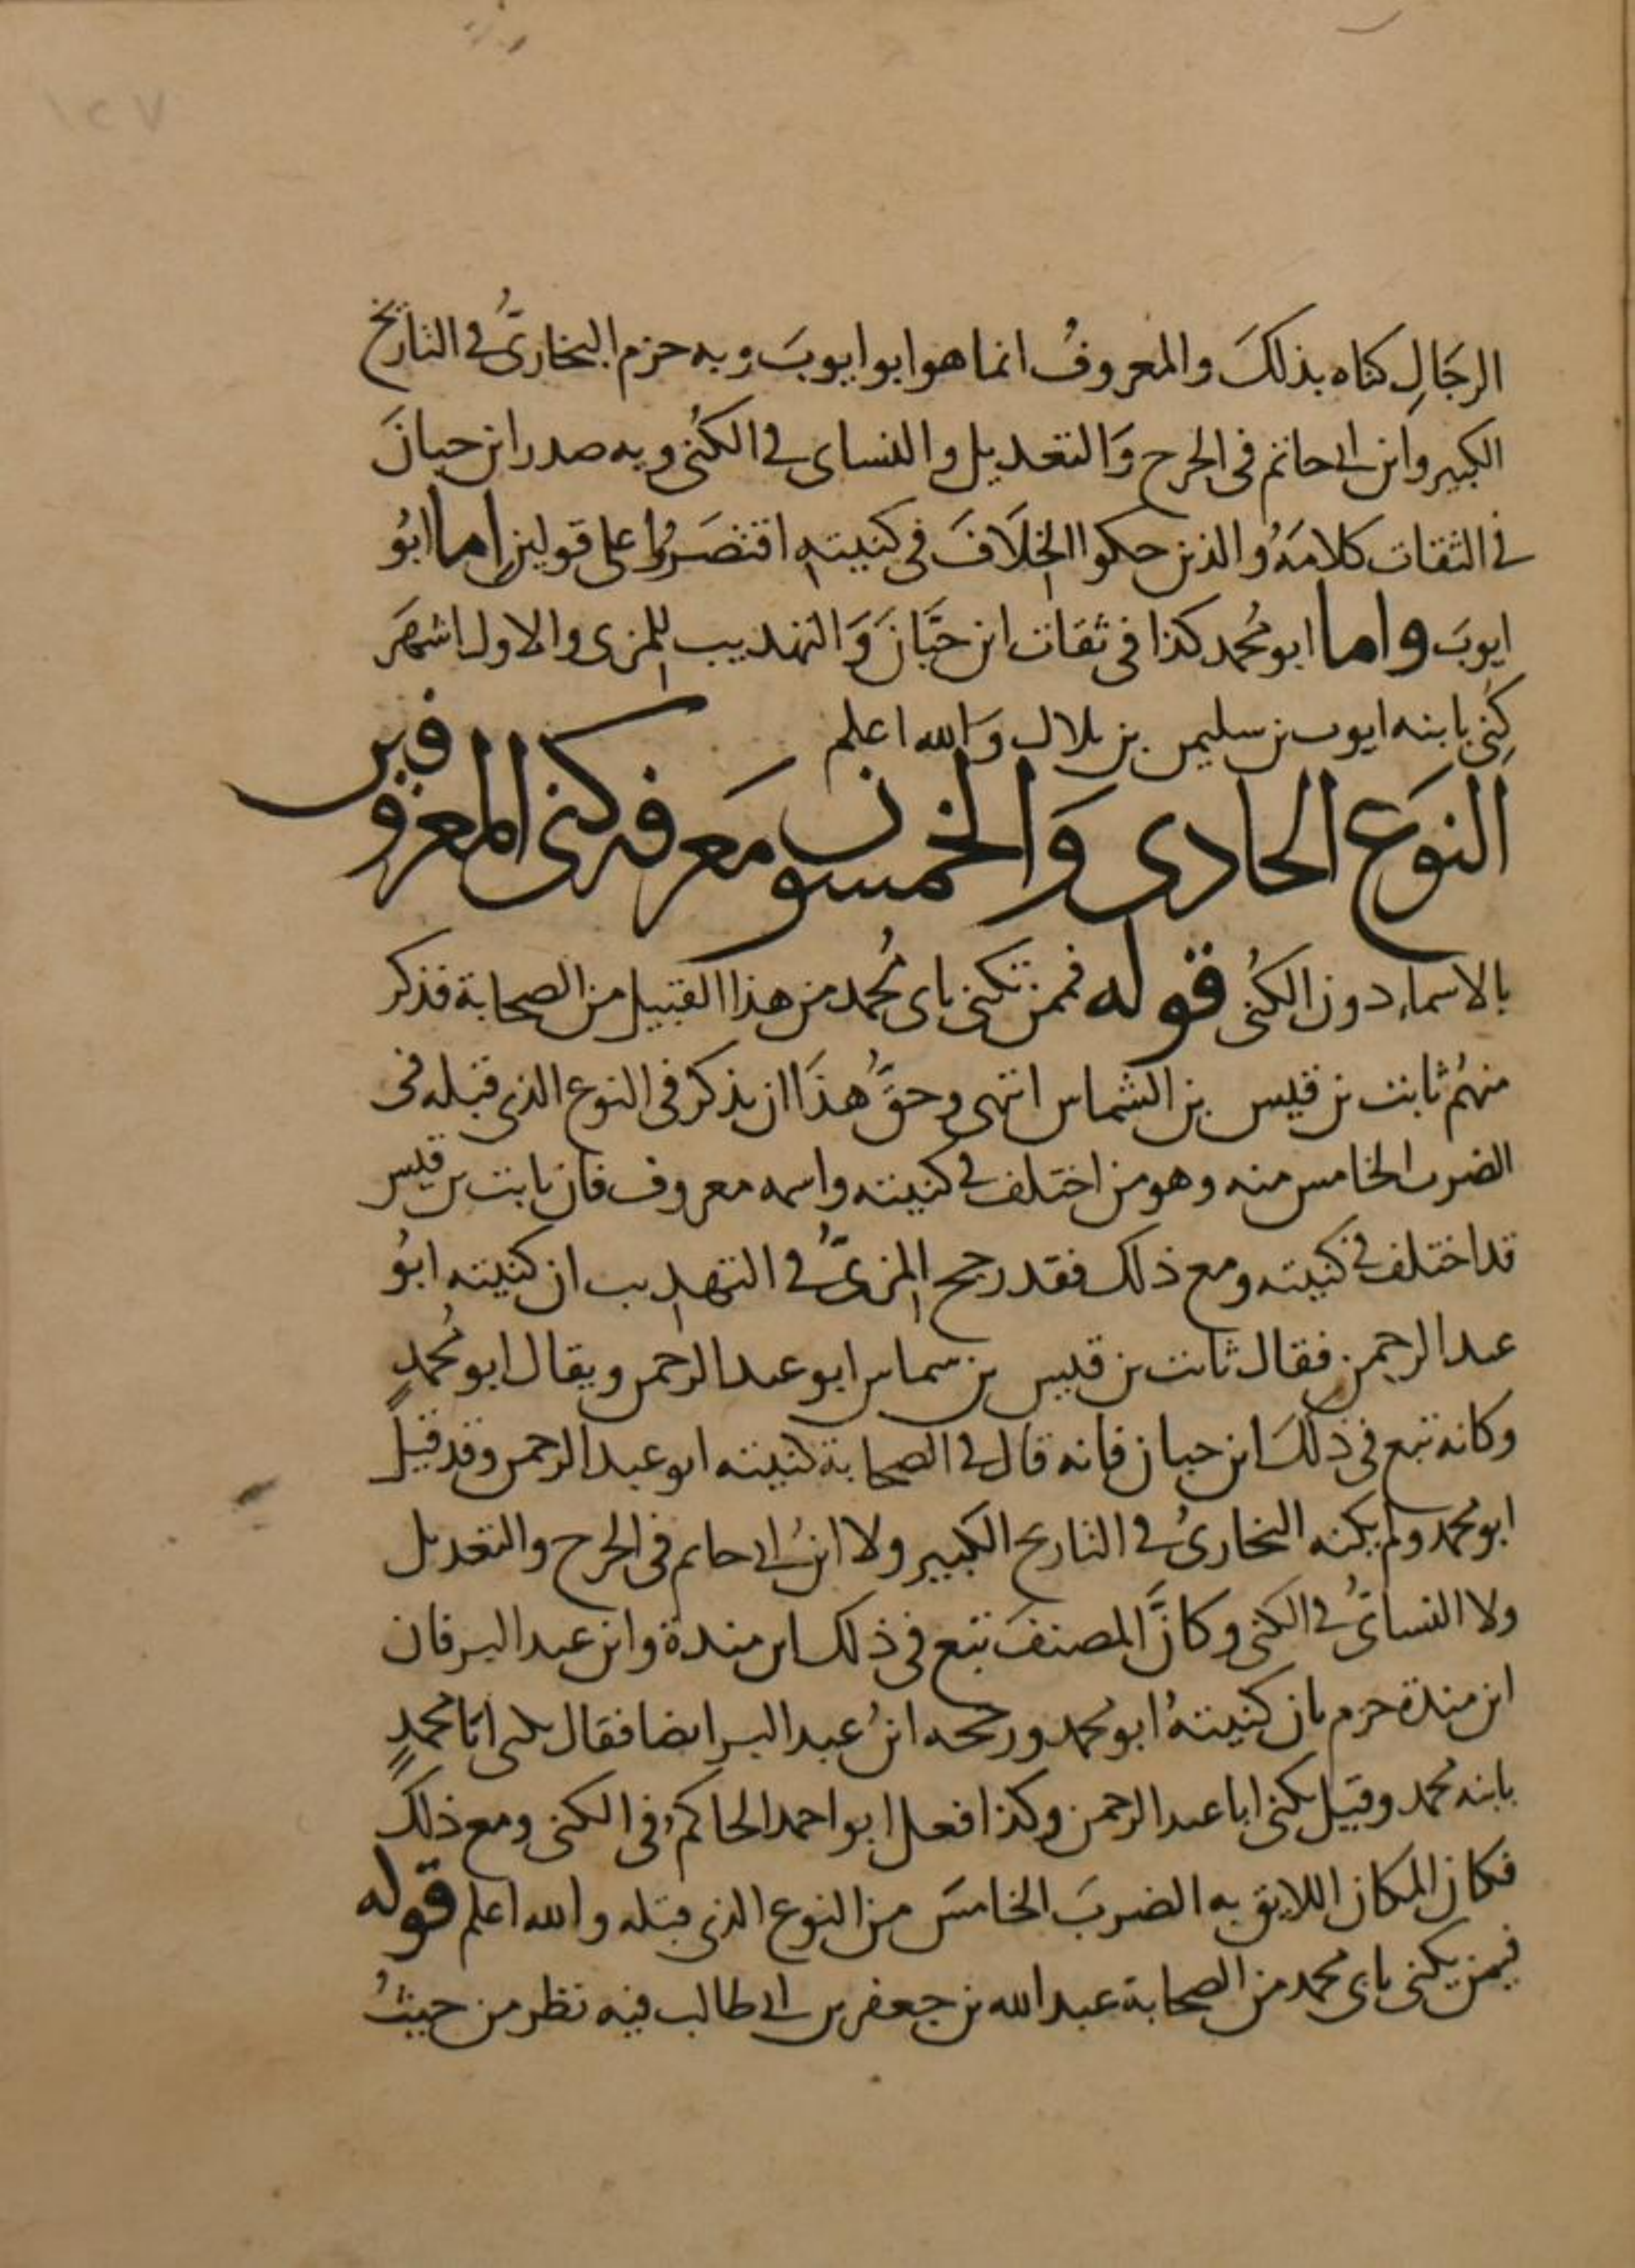 ١٢٧
الرجَالِ كناه بذلكَ والمعروفُ انما هو ابو ايوبَ وبه جزم البخاريُّ في التاريخ
الكبير وابن ابى حاتم فى الجرح وَالتعديل والنساى في الكُنى وبه صدر ابن حبانَ
في الثقات كلامَهُ والذين حكوا الخلَافَ فى كنيته اقتصَرُوا على قولين اما ابوُ
ايوبَ واما ابو محُمد كذا فى ثقات ابن حبَّانَ وَالتهذيب للمزى والاول اشهَر
كِنى بابنه ايوب بن سليمن بن بلال وَالله اعلم
النوَع الحادى وَالخمسون معَرفه كنى المعروفين
بالاسماء دون الكُنى قوله فممن تكنى بابى محُمد من هذا القبيل من الصحابة فذكر
منهُم ثابت بن قيس بن الشماس انتهى وحقُّ هذَا ان يذكر فى النوع الذى قبله فى
الضرب الخامس منه وهو من اختلف في كنيته واسمه معروف فان ثابت بن قيس
قد اختلف في كنيته ومع ذلك فقد رجح المزىُّ في التهذيب ان كنيته ابوُ
عبد الرحمن فقال ثابت بن قيس بن شماس ابو عبد الرحمن ويقال ابو محُمدٍ
وكانه تبع فى ذلكَ ابن حبان فانه قال في الصحابة كنيته ابو عبد الرحمن وقد قيل
ابو محُمد ولم يكنه البخارىُ في التاريخ الكبير ولا ابنُ ابى حاتم فى الجرح والتعديل
ولا النسائىُّ في الكنى وكانَّ المصنفَ تبع فى ذلك ابن مندة وابن عبد البر فان
ابن مندة جزم بان كنيتهُ ابو محُمد ورجحه ابنُ عبد البر ايضا فقال يكنى ابا محُمدٍ
بابنه محُمد وقيل يكنى ابا عبد الرحمن وكذا فعل ابو احمد الحاكمُ فى الكنى ومع ذلكَ
فكان المكان اللايق به الضربَ الخامسَ من النوع الذى قبله والله اعلم قوله
فيمن يكنى بابى محُمد من الصحابة عبد الله بن جعفر بن ابى طالب فيه نظر من حيثُ